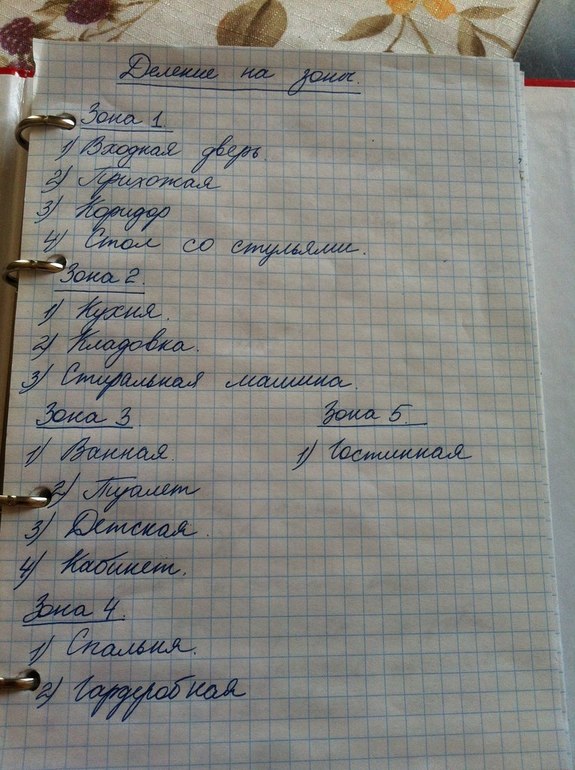 Деление на зоны.
Зона 1
1) Входная дверь.
2) Прихожая
3) Коридор
4) Стол со стульями.
Зона 2.
1) Кухня.
2) Кладовка.
3) Стиральная машина.
Зона 3
1) Ванная.
2) Туалет
3) Детская.
4) Кабинет.
Зона 4.
1) Спальня.
2) Гардеробная
Зона 5.
1) Гостинная